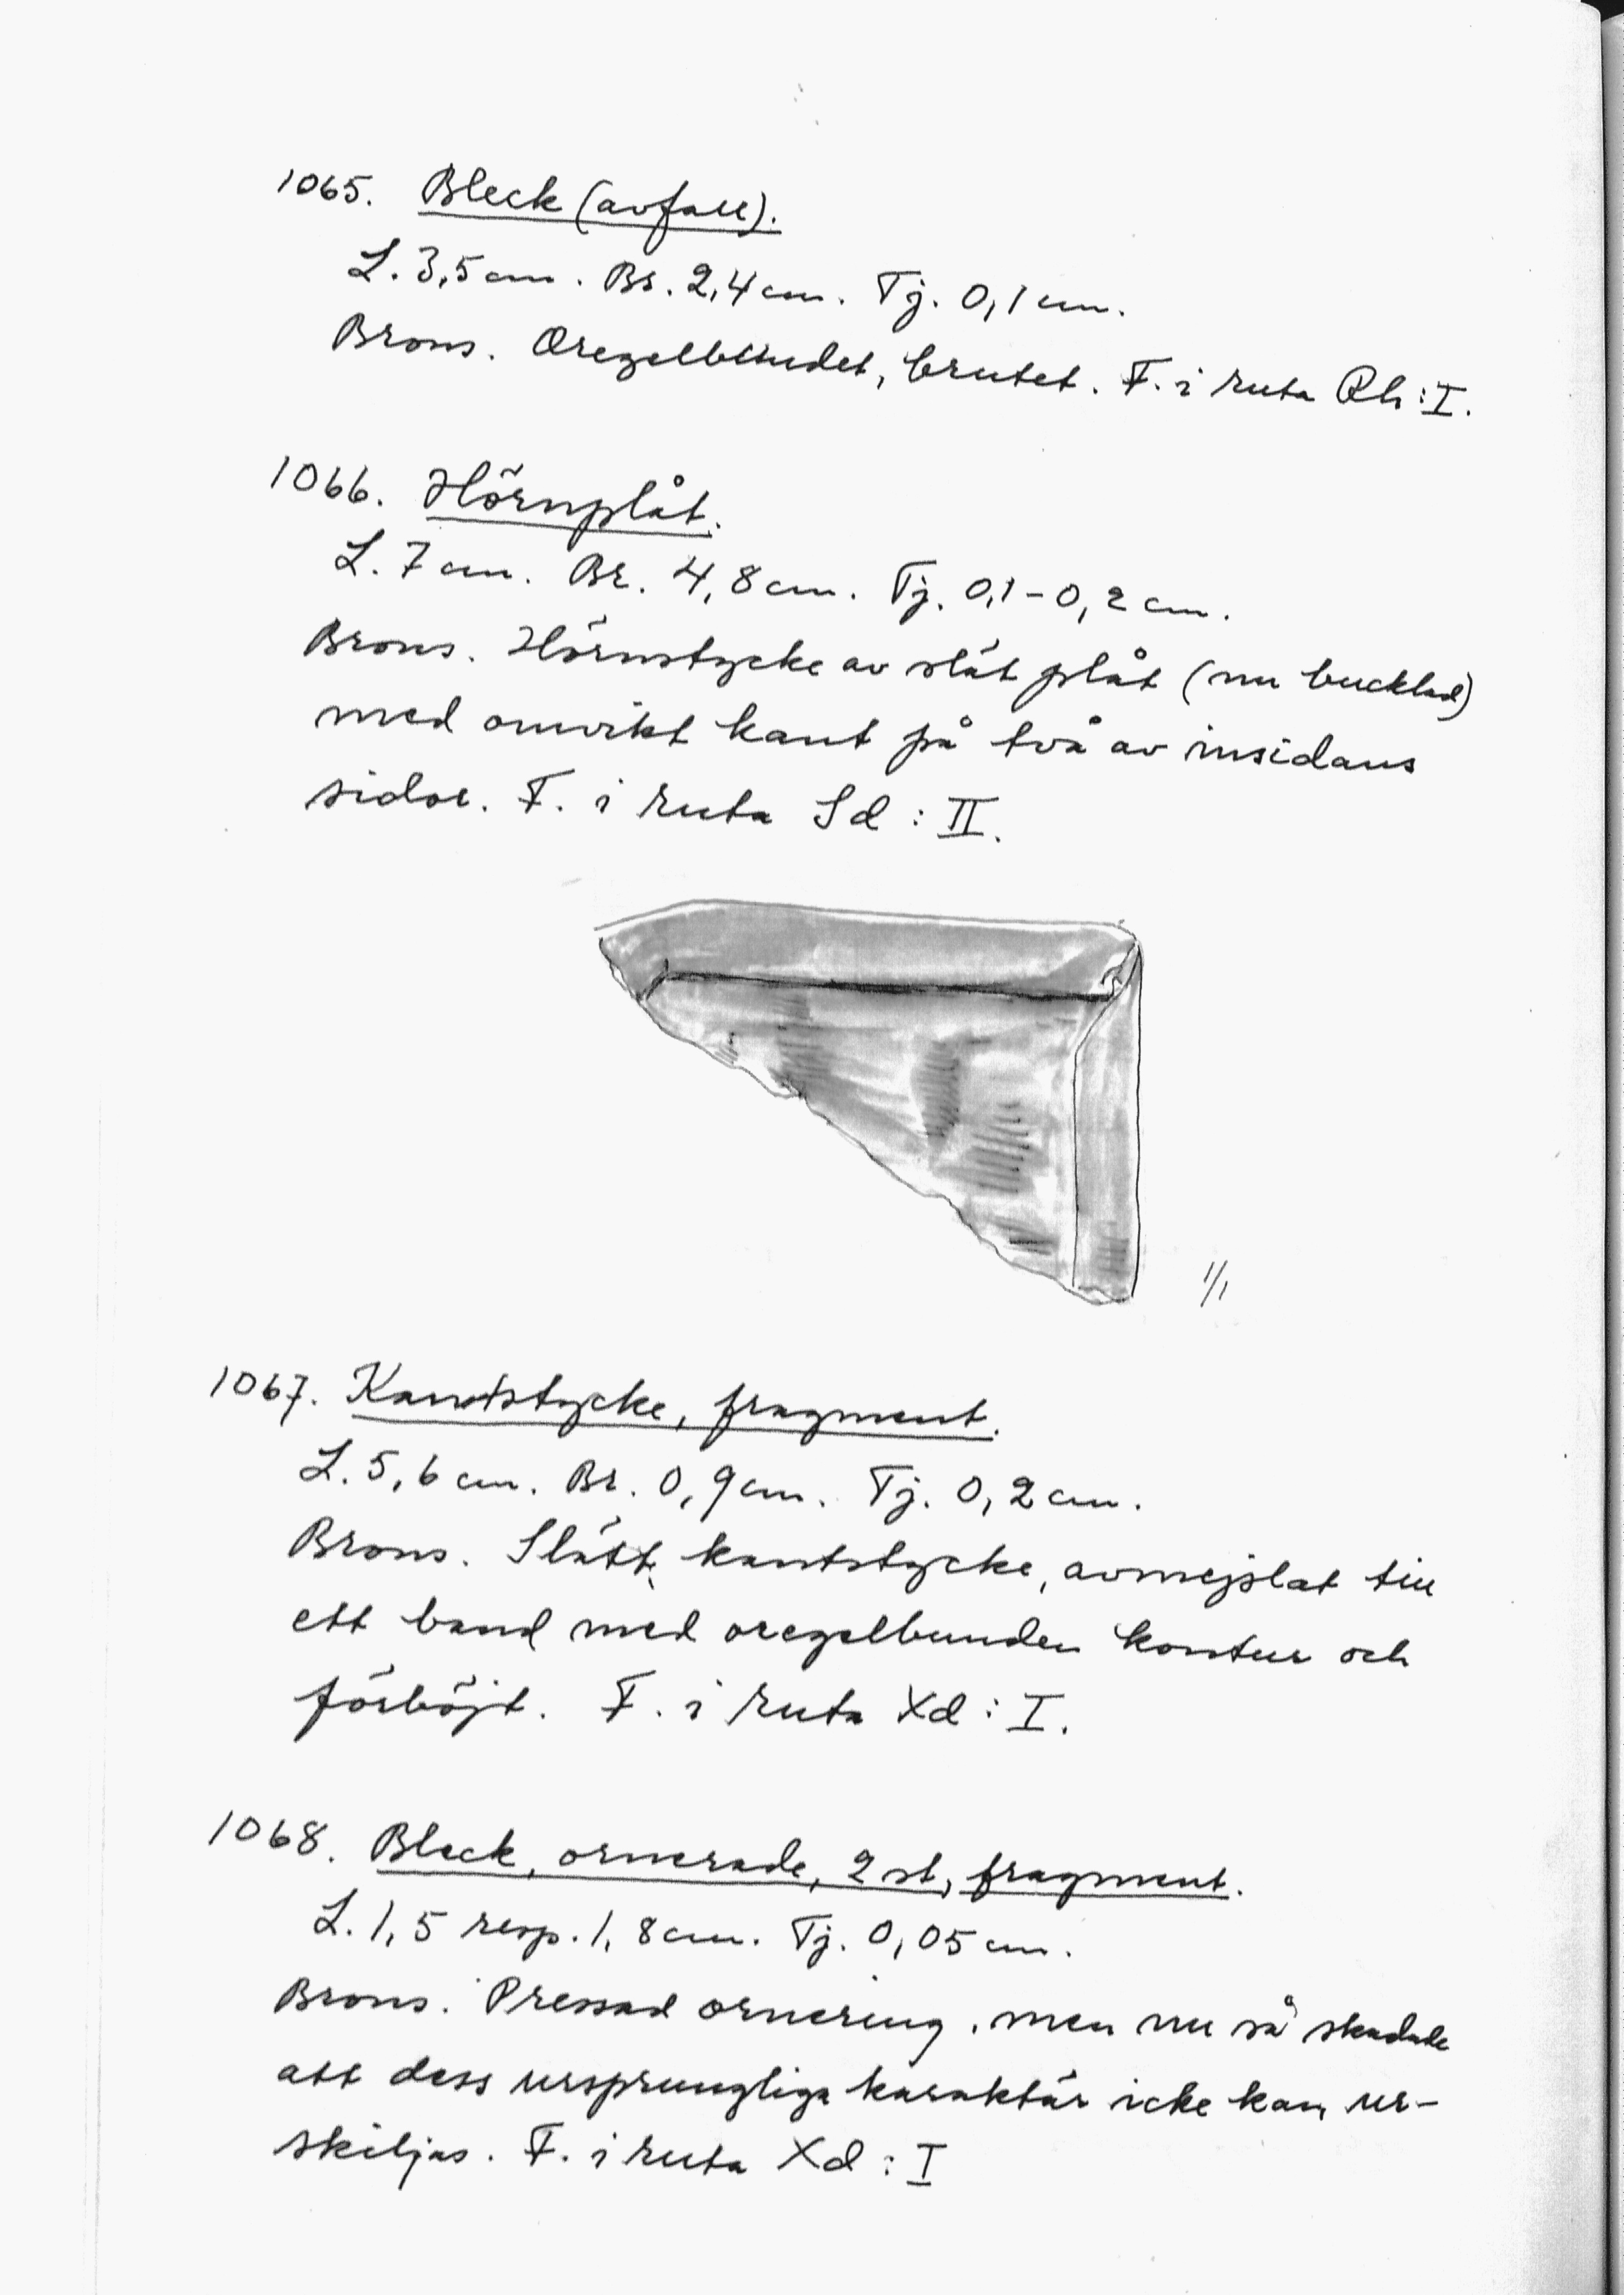 1065. Bleck (avfall).
L. 3,5 cm. Br. 2,4 cm. Tj. 0,1 cm.
Brons. Oregelbundet, brutet. F. i ruta Rh : I.
1066. Hörnplåt.
L. 7 cm. Br. 4,8 cm. Tj. 0,1-0,2 cm.
Brons. Hörnstycke av slät plåt (nu bucklad)
med omvikt kant på två av insidans
sidor. F. i ruta Sd : II.
1/1
1067. Kantstycke, fragment.
L. 5,6 cm. Br. 0,9 cm. Tj. 0,2 cm.
Brons. Slätt kantstycke, avmejslat till
ett band med oregelbunden kontur och
förböjt. F. i ruta Xd : I.
1068. Bleck, ornerade, 2 st, fragment.
L. 1,5 resp. 1,8 cm. Tj. 0,05 cm.
Brons. Pressad ornering, men nu så skadade
att dess ursprungliga karaktär icke kan ur-
skiljas. F. i ruta Xd : I